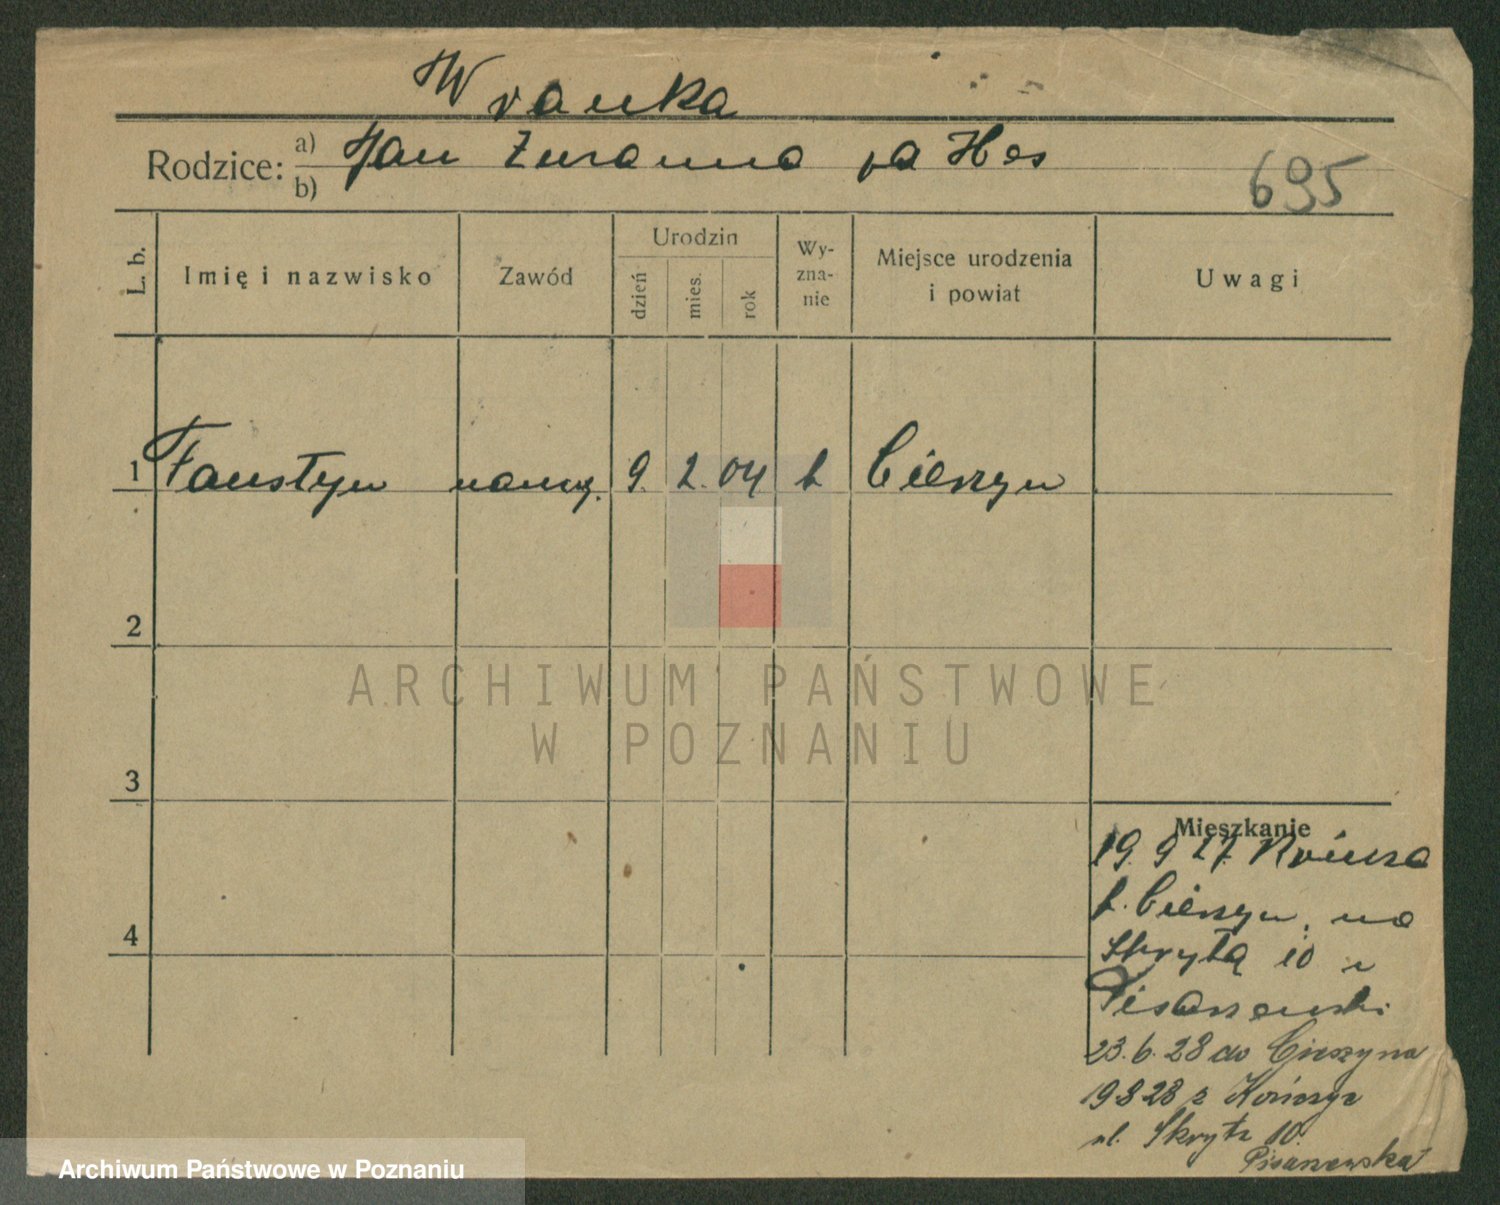 Wranka
Rodzice: a) Jan Zuzanna
b)
695
L. b.
Imię i nazwisko
Zawód
Urodzin
dzień
mies.
rok
Wy-
zna-
nie
Miejsce urodzenia
i powiat
Uwagi
1 Faustyn naucz. 9. 2. 04 Cieszyn
2
ARCHIWUM PAŃSTWOWE
W POZNANIU
3
4
Mieszkanie
19. 9 27.
Cieszyn, na
Skrytą 10 u
Pisarzewski
23. 6. 28 do Cieszyna
19 8 28 z Kończyc
ul. Skryta 10.
Pisarzewska
Archiwum Państwowe w Poznaniu